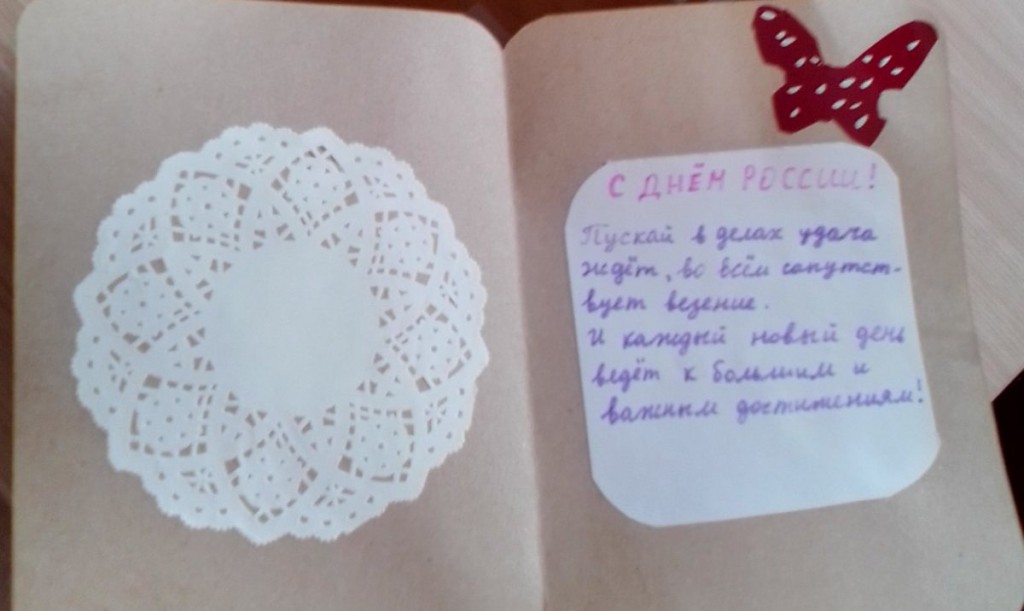 С ДНЁМ РОССИИ!
Пускай в делах удача
ждёт, во всём сопутст-
вует везение.
И каждый новый день
ведёт к большим и
важным достижениям!